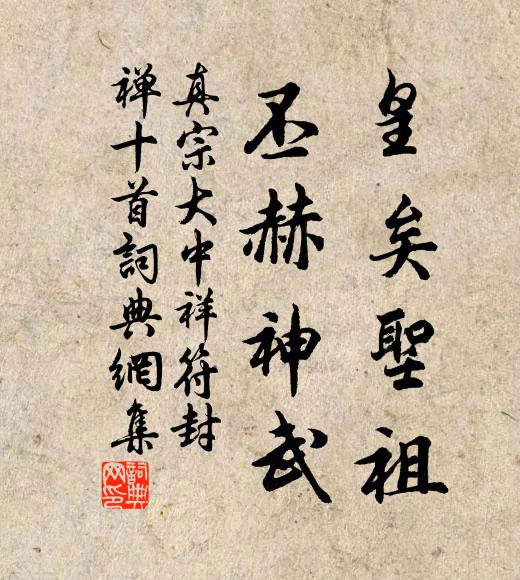 皇矣聖祖
丕赫神武
真宗大中祥符封
禅十首詞典網集
詞典網印